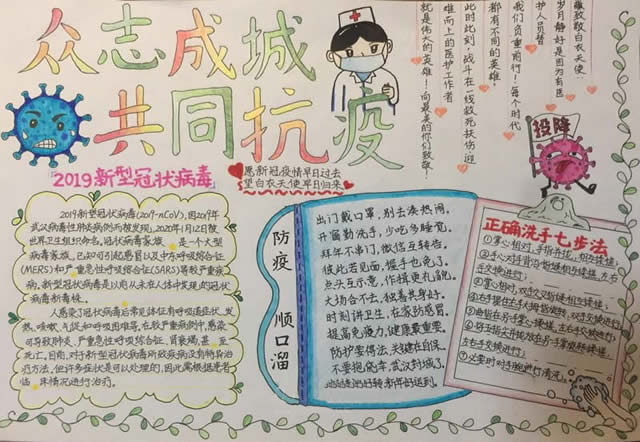 众志成城
共同抗疫
致敬白衣天使
岁月静好是因为有医
护人员替
我们负重前行!每个时代
都有不同的英雄,
此时此刻,战斗在一线救死扶伤迎
难而上的医护工作者
就是伟大的英雄!向最美的你们致敬!
「2019新型冠状病毒」
愿新冠疫情早日过去
望白衣天使早日归来
投降
2019新型冠状病毒(2019-nCoV),因2019年
武汉病毒性肺炎病例而被发现,2020年1月12日被
世界卫生组织命名。冠状病毒家族是一个大型
病毒家族,已知可引起感冒以及中东呼吸综合征
(MERS)和严重急性呼吸综合征(SARS)等较严重疾
病。新型冠状病毒是以前从未在人体中发现的冠状
病毒新毒株。
人感染了冠状病毒后常见体征有呼吸道症状、发
热、咳嗽、气促和呼吸困难等。在较严重病例中,感染
可导致肺炎、严重急性呼吸综合征、肾衰竭、甚至
死亡。目前,对于新型冠状病毒所致疾病没有特异治
疗方法。但许多症状是可以处理的,因此需根据患者临
床情况进行治疗。
防疫 顺口溜
出门戴口罩,别去凑热闹。
开窗勤洗手,少吃多睡觉。
拜年不串门,微信互转告。
彼此若见面,握手也免了。
点头互示意,作揖更礼貌。
大场合不去,独善其身好。
时刻讲卫生,在家防感冒。
提高免疫力,健康最重要。
防护要得法,关键在自保。
不要抱侥幸,武汉封城了。
正确洗手七步法
①掌心相对,手指并拢,相互揉搓;
②手心对手背沿指缝相互揉搓,左右
手交换进行;
③掌心相对,双手交叉指缝相互揉搓;
⑦必要时对手腕进行清洗。